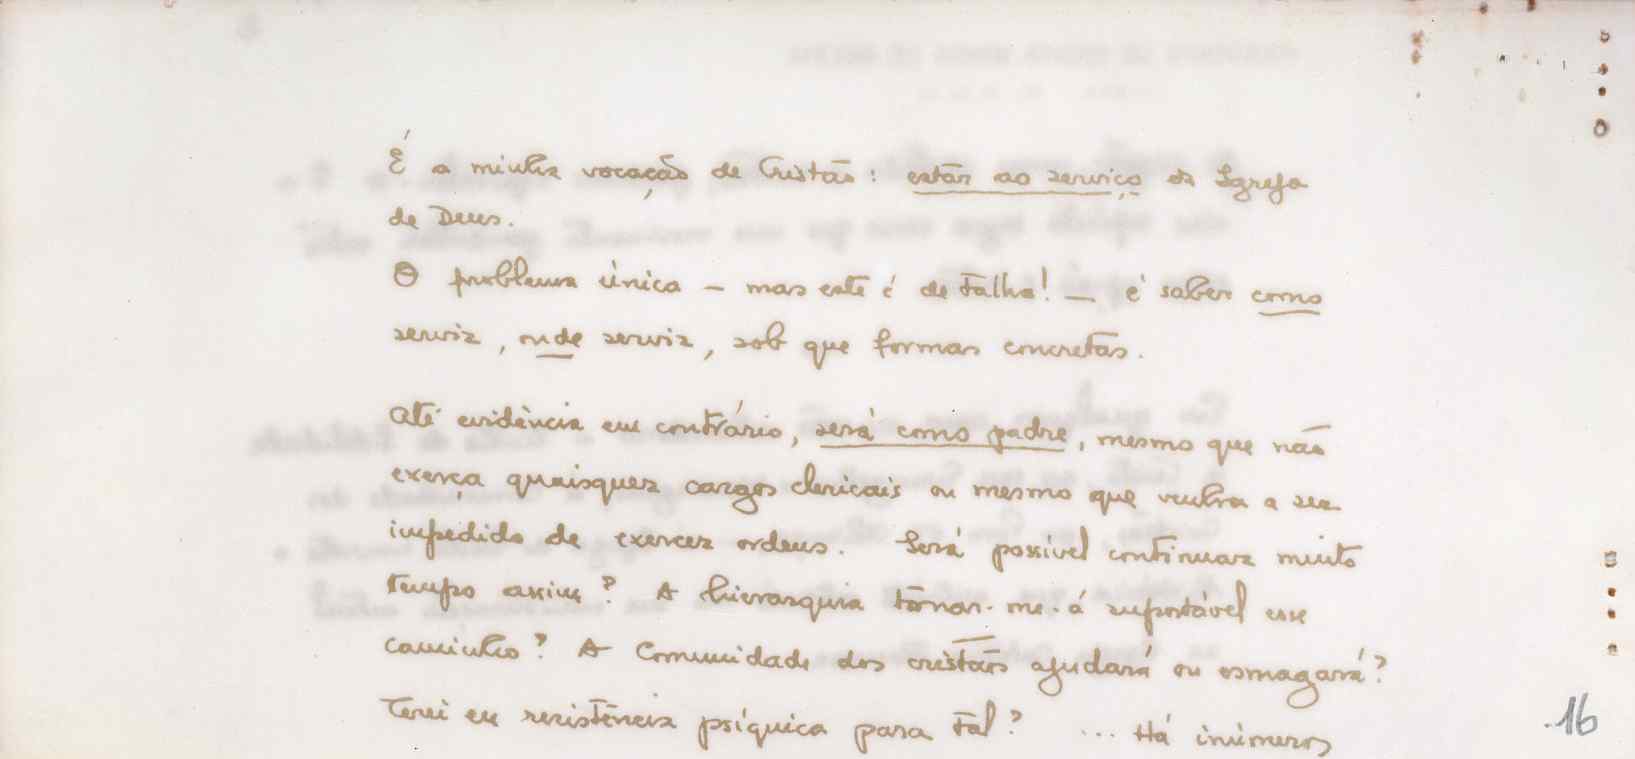 É a minha vocação de Cristão: estar ao serviço da Igreja
de Deus.
O problema único – mas este é de talha! – é saber como
servir, onde servir, sob que formas concretas.
Até evidência em contrário, será como padre, mesmo que não
exerça quaisquer cargos clericais ou mesmo que venha a ser
impedido de exercer ordens. Será possível continuar muito
tempo assim? A hierarquia tornar-me-á suportável esse
caminho? A Comunidade dos cristãos ajudará ou esmagará?
Terei eu resistência psíquica para tal? ... Há inúmeros
16